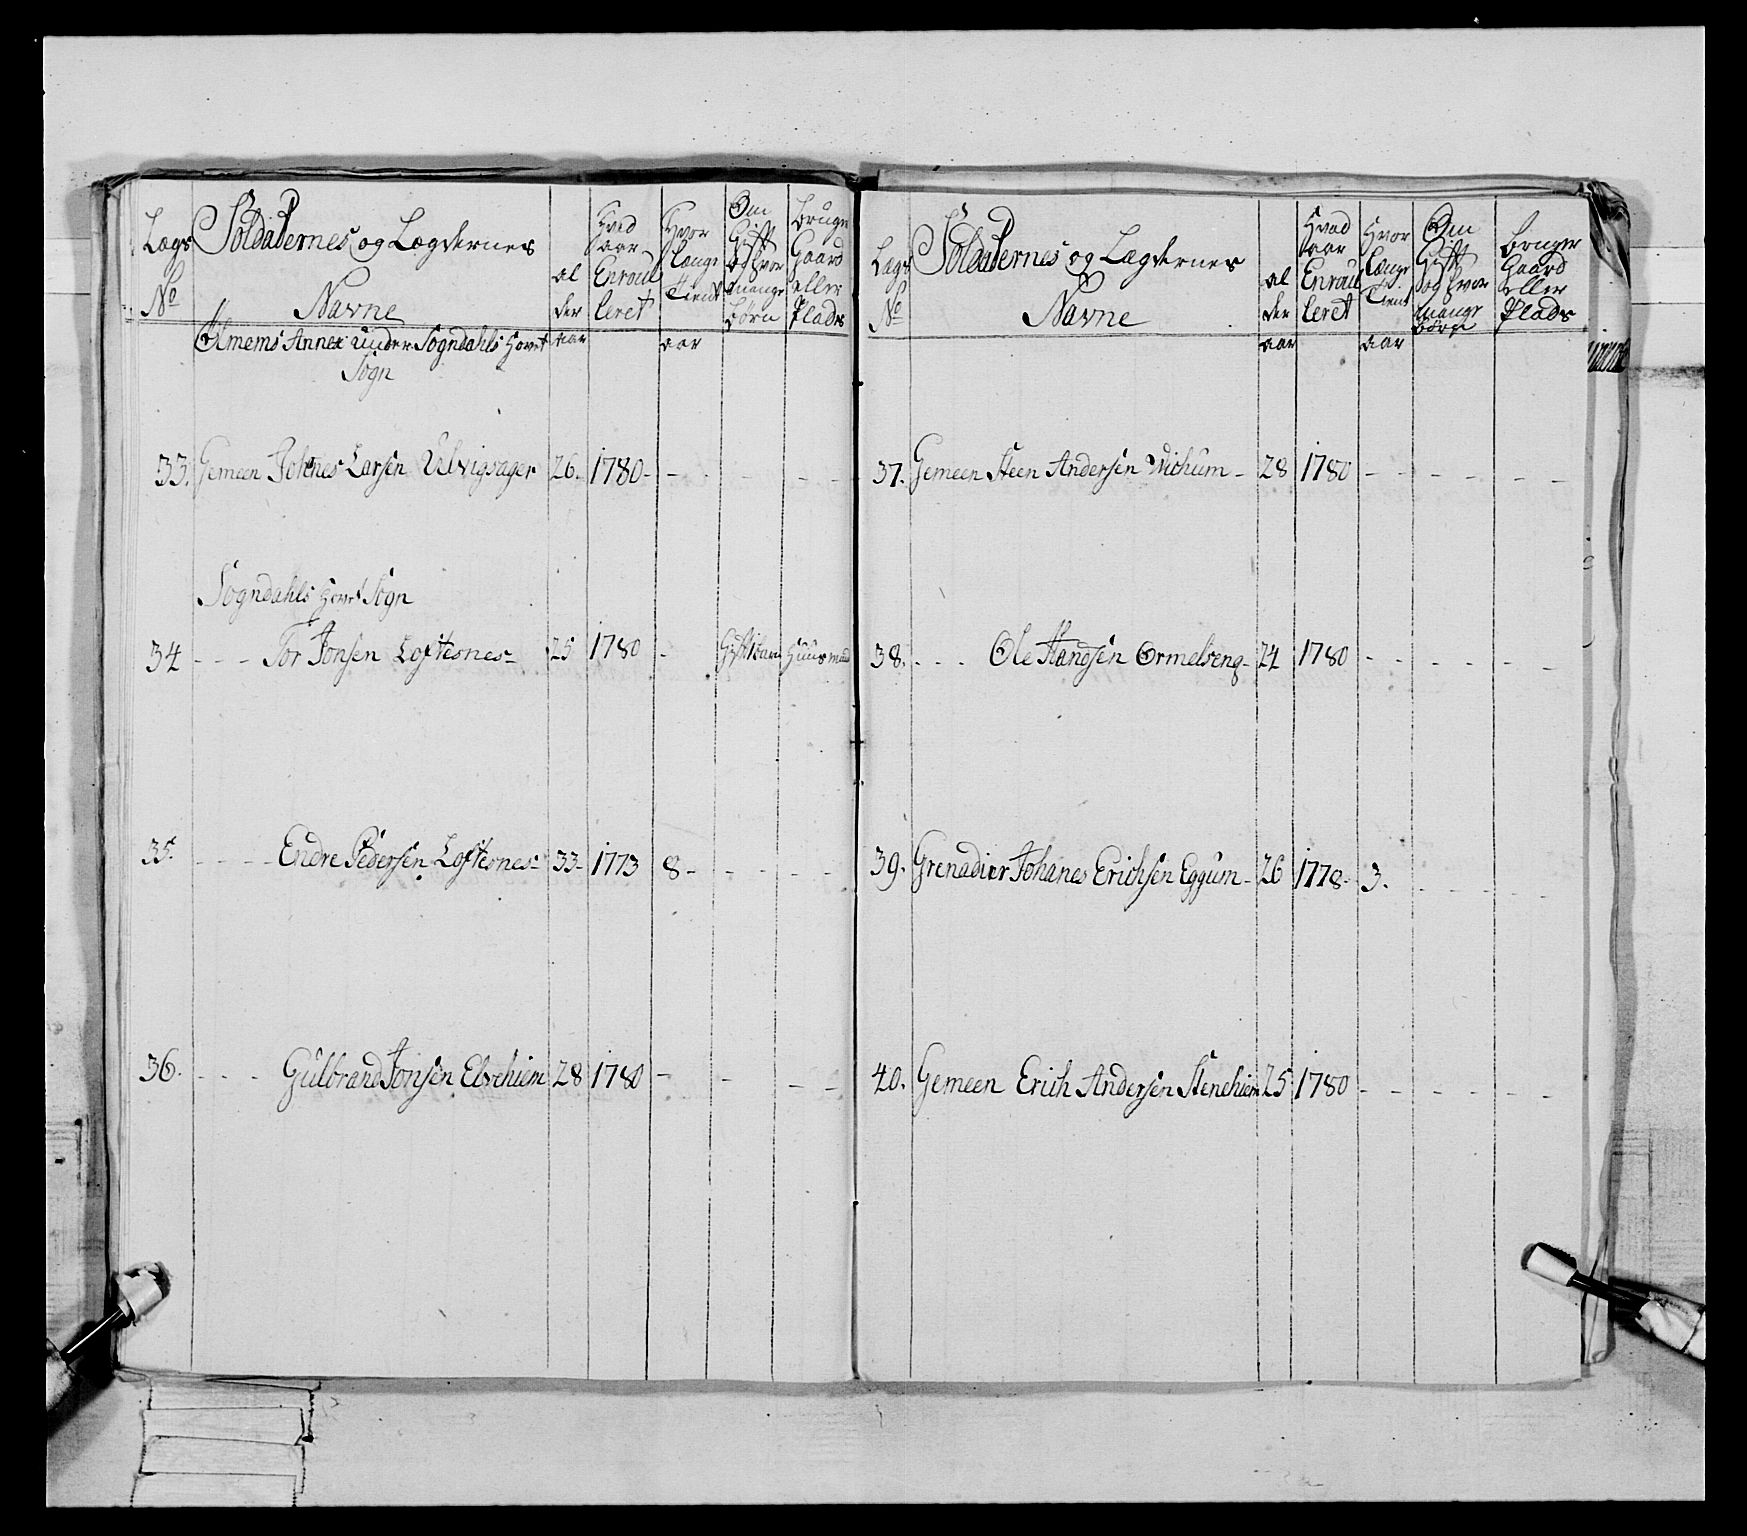 Lægs
No
Soldaternes og Lægdernes
Navne
al
der
Hvad
aar
Enroul
leret
Hvor
længe
Tient
Om
Gift
og hvor
mange
Börn
bruger
Gaard
eller
Plads
Annex under Sogndahls Hovet
Sogn
aar
aar
33. Gemeen Johnes Larsen Ulvigsager 26. 1780 - - - - -
Sogndahls Hovet Sogn
34 - - - Tor Jonsen Loftesnes - 25 1780 - Gift 1 barn Huusmand
35. - - - - Endre Pedersen Loftesnes - 33 - 1773 8 - - - - -
36. - - - Gulbrand Jonsen Elvehiem 28 1780 - - - -
Lægs
No
Soldaternes og Lægdernes
Navne
al
der
Hvad
aar
Enroul
leret
Hvor
længe
Tient
Om
Gift
og hvor
mange
Börn
bruger
Gaard
eller
Plads
aar
aar
37. Gemeen Steen Andersen Vichum - 28 1780 - - - - - -
38. - - - Ole Hansen Ormelseng - 24 1780 - - - - - -
39. Grenadier Johanes Erichsen Eggum - 26 1778 - 3. - - - - -
40. Gemeen Erich Andersen Stenehiem 25 1780 - - - - - - -